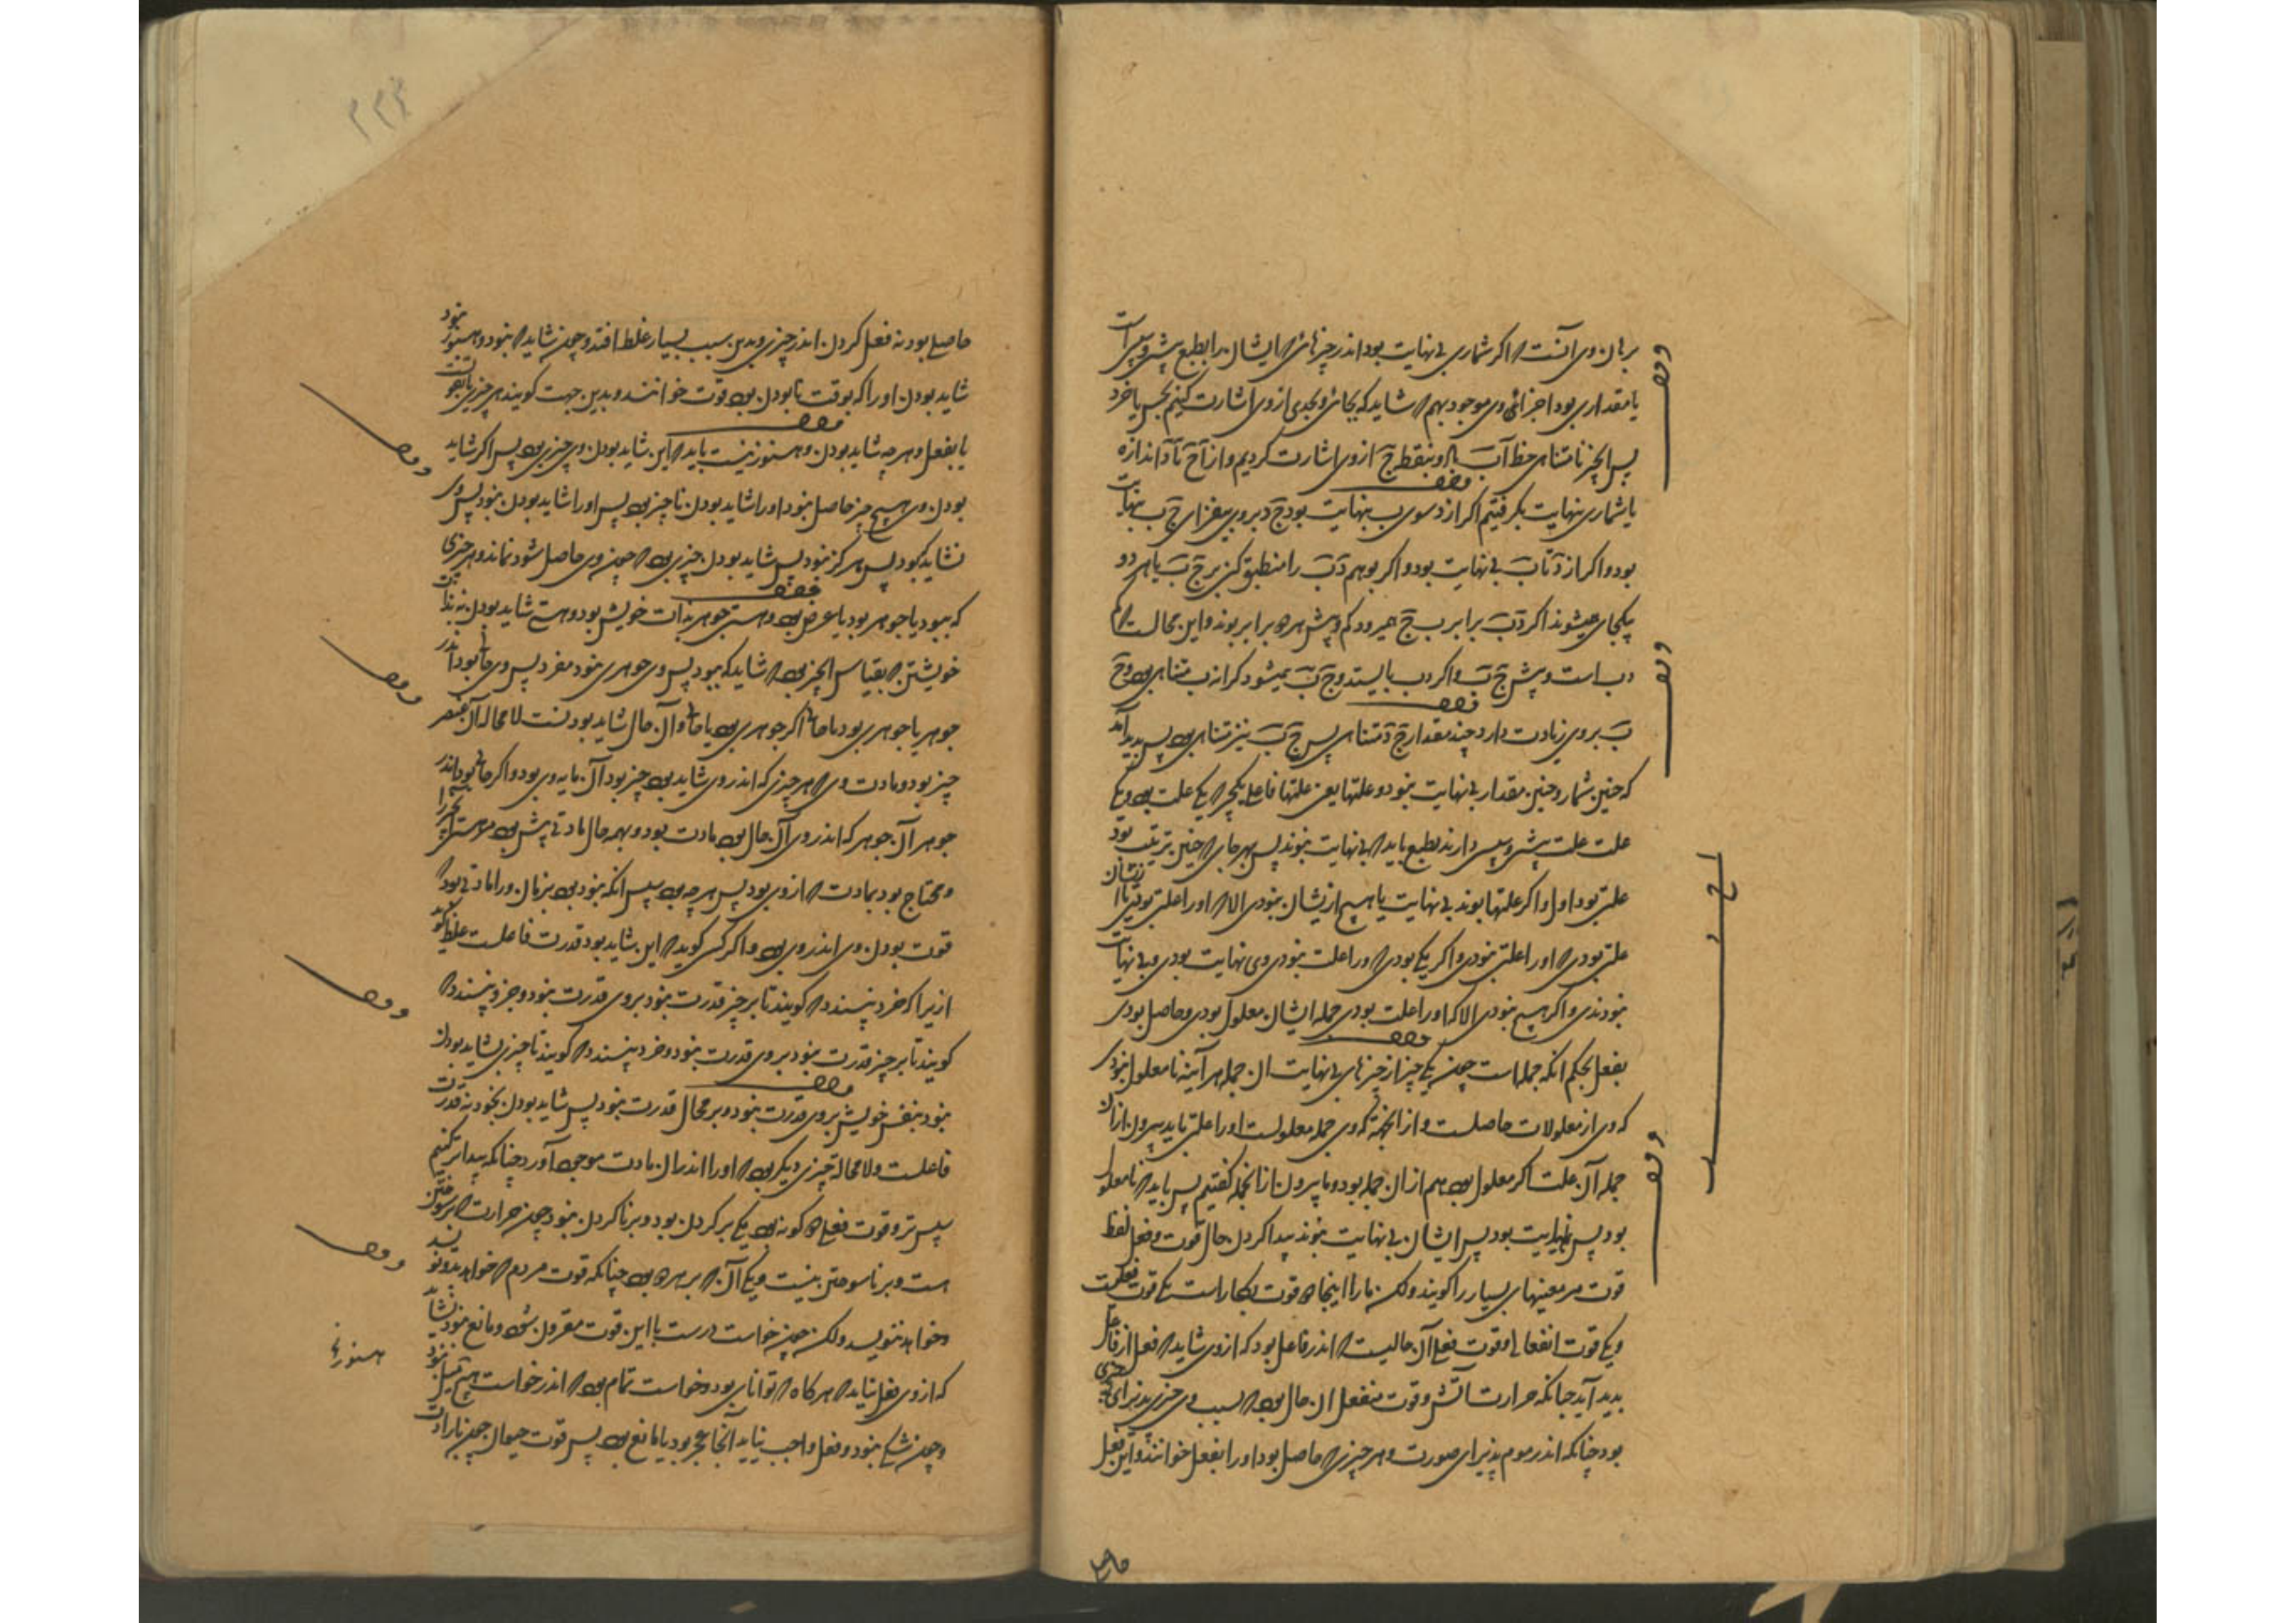 برهان وی آنست که اگر شماری بی نهایت بود اندر چیزهائی که ایشانرا بطبع پیشی و سپسی است
یا مقداری بود اجزائی وی موجود بهم که شاید که بجائی و بحدی از وی اشارت کنیم بحس یا خرد
پس آنچیز نامتناهی خط آب باد و بنقطه ج از وی اشارت کردیم و از ج تا د اندازه
یا شماری نهایت بگرفتیم اگر از د سوی ب بنهایت بود ج د بر وی بیفزای ج ب بنهایت
بود و اگر از د تا ب بی نهایت بود و اگر بوهم د ب را منطبق کنی بر ج ب یا هر دو
یکجای میشوند اگر د ب برابر ب ج همی رود کم و بیش هر دو برابر بوند و این محالست که کم
د ب است و بیش ج ب و اگر د ب بایستد و ج ب بمیشود کرانه ب متناهی بود و ج
ب بر وی زیادت دارد چند مقدار ج د متناهی پس ج ب نیز متناهی بود پس پدید آمد
که چنین شمار و چنین مقدار بی نهایت نبود و علتها یعنی علتها فاعلی یکچیز که یکی علت بود و یکی
علت علت پیشی و سپسی دارند بطبع باید که بی نهایت نبوند پس بهر جای که چنین ترتیب بود
علتی بود اول و اگر علتها بوند بی نهایت یا هیچ از یشان نبودی الا که اورا علتی بودی یا از یشان
علتی بودی که اورا علتی نبودی و اگر یکی بودی که ورا علت نبودی وی نهایت بودی و بی نهایت
نبودندی و اگر هیچ نبودی الا که اورا علت بودی جمله ایشان معلول بودی و حاصل بودی
بفعل بحکم انکه جمله است چون یکی چیز از چیزهای بی نهایت ان جمله هر آینه نامعلول نبودی
که وی از معلولات حاصلست و از انجهة که وی جمله معلولست اورا علتی باید بیرون از ان
جمله آن علت اگر معلول بود هم از ان جمله بود و ما بیرون از انجمله گفتیم پس باید که نامعلول
بود پس نهایت بود پس ایشان بی نهایت نبوند پیدا کردن حال قوت و فعل لفظ
قوت مر معنیهای بسیار را گویند ولکن مارا اینجا دو قوت بکار است یکی قوت فعلی
و یکی قوت انفعالی و قوت فعلی آن حالیست که اندر فاعل بود که از وی شاید که فعل از فاعل
بدید آید چنانکه حرارت آتش و قوت منفعل ان حال بود که بسبب وی چیزی پذیرای چیزی
بود چنانکه اندر موم پذیرای صورت و هر چیزی که حاصل بود او را بفعل خوانند و این فعل
حاصل
۲۲۴
حاصلی بود نه فعل کردن اندر چیزی و بدین سبب بسیار غلط افتد و چون شاید که نبود و هنوز نبود
شاید بودن اورا که بوقت نابودن بود قوت خوانند و بدین جهت گویند هر چیزی یا بقوت
یا بفعل و هر چه شاید بودن و هنوز نیست باید که این شاید بودن وی چیزی بود پس اگر شاید
بودن وی هیچ چیز حاصل نبود اورا شاید بودن ناچیز بود پس اورا شاید بودن نبود پس وی
نشاید که بود پس هرگز نبود پس شاید بودن چیزی بود که چون وی حاصل شود نماند و هر چیزی
که ببود یا جوهر بود یا عرض بود و هستی جوهر بذات خویش بود و هستی شاید بودن نه بذات
خویشتن که بقیاس آنچیز بود که شاید که ببود پس وی جوهری نبود مفرد پس وی حالی بود اندر
جوهر یا جوهری بود با حالی اگر جوهری بود با حالی و آن حال شاید بودنست لامحاله آن عنصر
چیز بود و مادت وی که هر چیزی که اندر وی شاید بود چیز بود آن مایه وی بود و اگر حالی بود اندر
جوهر آن جوهر که اندر وی آن حال بود مادت بود و بهمه حال مادتی پیش بود مر هستی آنچیز را
و محتاج بود بمادت که از وی بود پس هر چه بود سپس انکه نبود بود بزمان ورا مادتی بود که
قوت بودن وی اندر وی بود و اگر کسی گوید که این شاید بود قدرت فاعلست غلط گوید
ازیرا که خرد نپسندد که گویند تا بر چیز قدرت نبود بر وی قدرت نبود و خرد نپسندد که
گویند تا بر چیز قدرت نبود بر وی قدرت نبود و خرد پسندد که گویند تا چیزی بشاید بودن
نبود بنفس خویش بر وی قدرت نبود و بر محال قدرت نبود پس شاید بودن بخود نه قدرت
فاعلست ولامحالة چیزی دیگر بود که اورا اندر ان مادت موجود آورد چنانکه پیدا تر کنیم
سپس تر و قوت فعلی دو گونه بود یکی بر کردن بود و بر ناکردن نبود چون حرارت که بر سوختن
است و بر ناسوختن نیست و یکی آن که بر هر دو بود چنانکه قوت مردم که خواهد بنویسد
و خواهد ننویسد ولکن چون خواست درست با این قوت مقرون شود و مانع نبود نشاید
که از وی فعل نیاید که هر گاه که توانایی بود و خواست تمام بود که اندر خواست هیچ میل نبود
و چون شکی نبود و فعل واجب نیاید آنجا عجز بود یا مانع بود پس قوت حیوان چون با ارادت